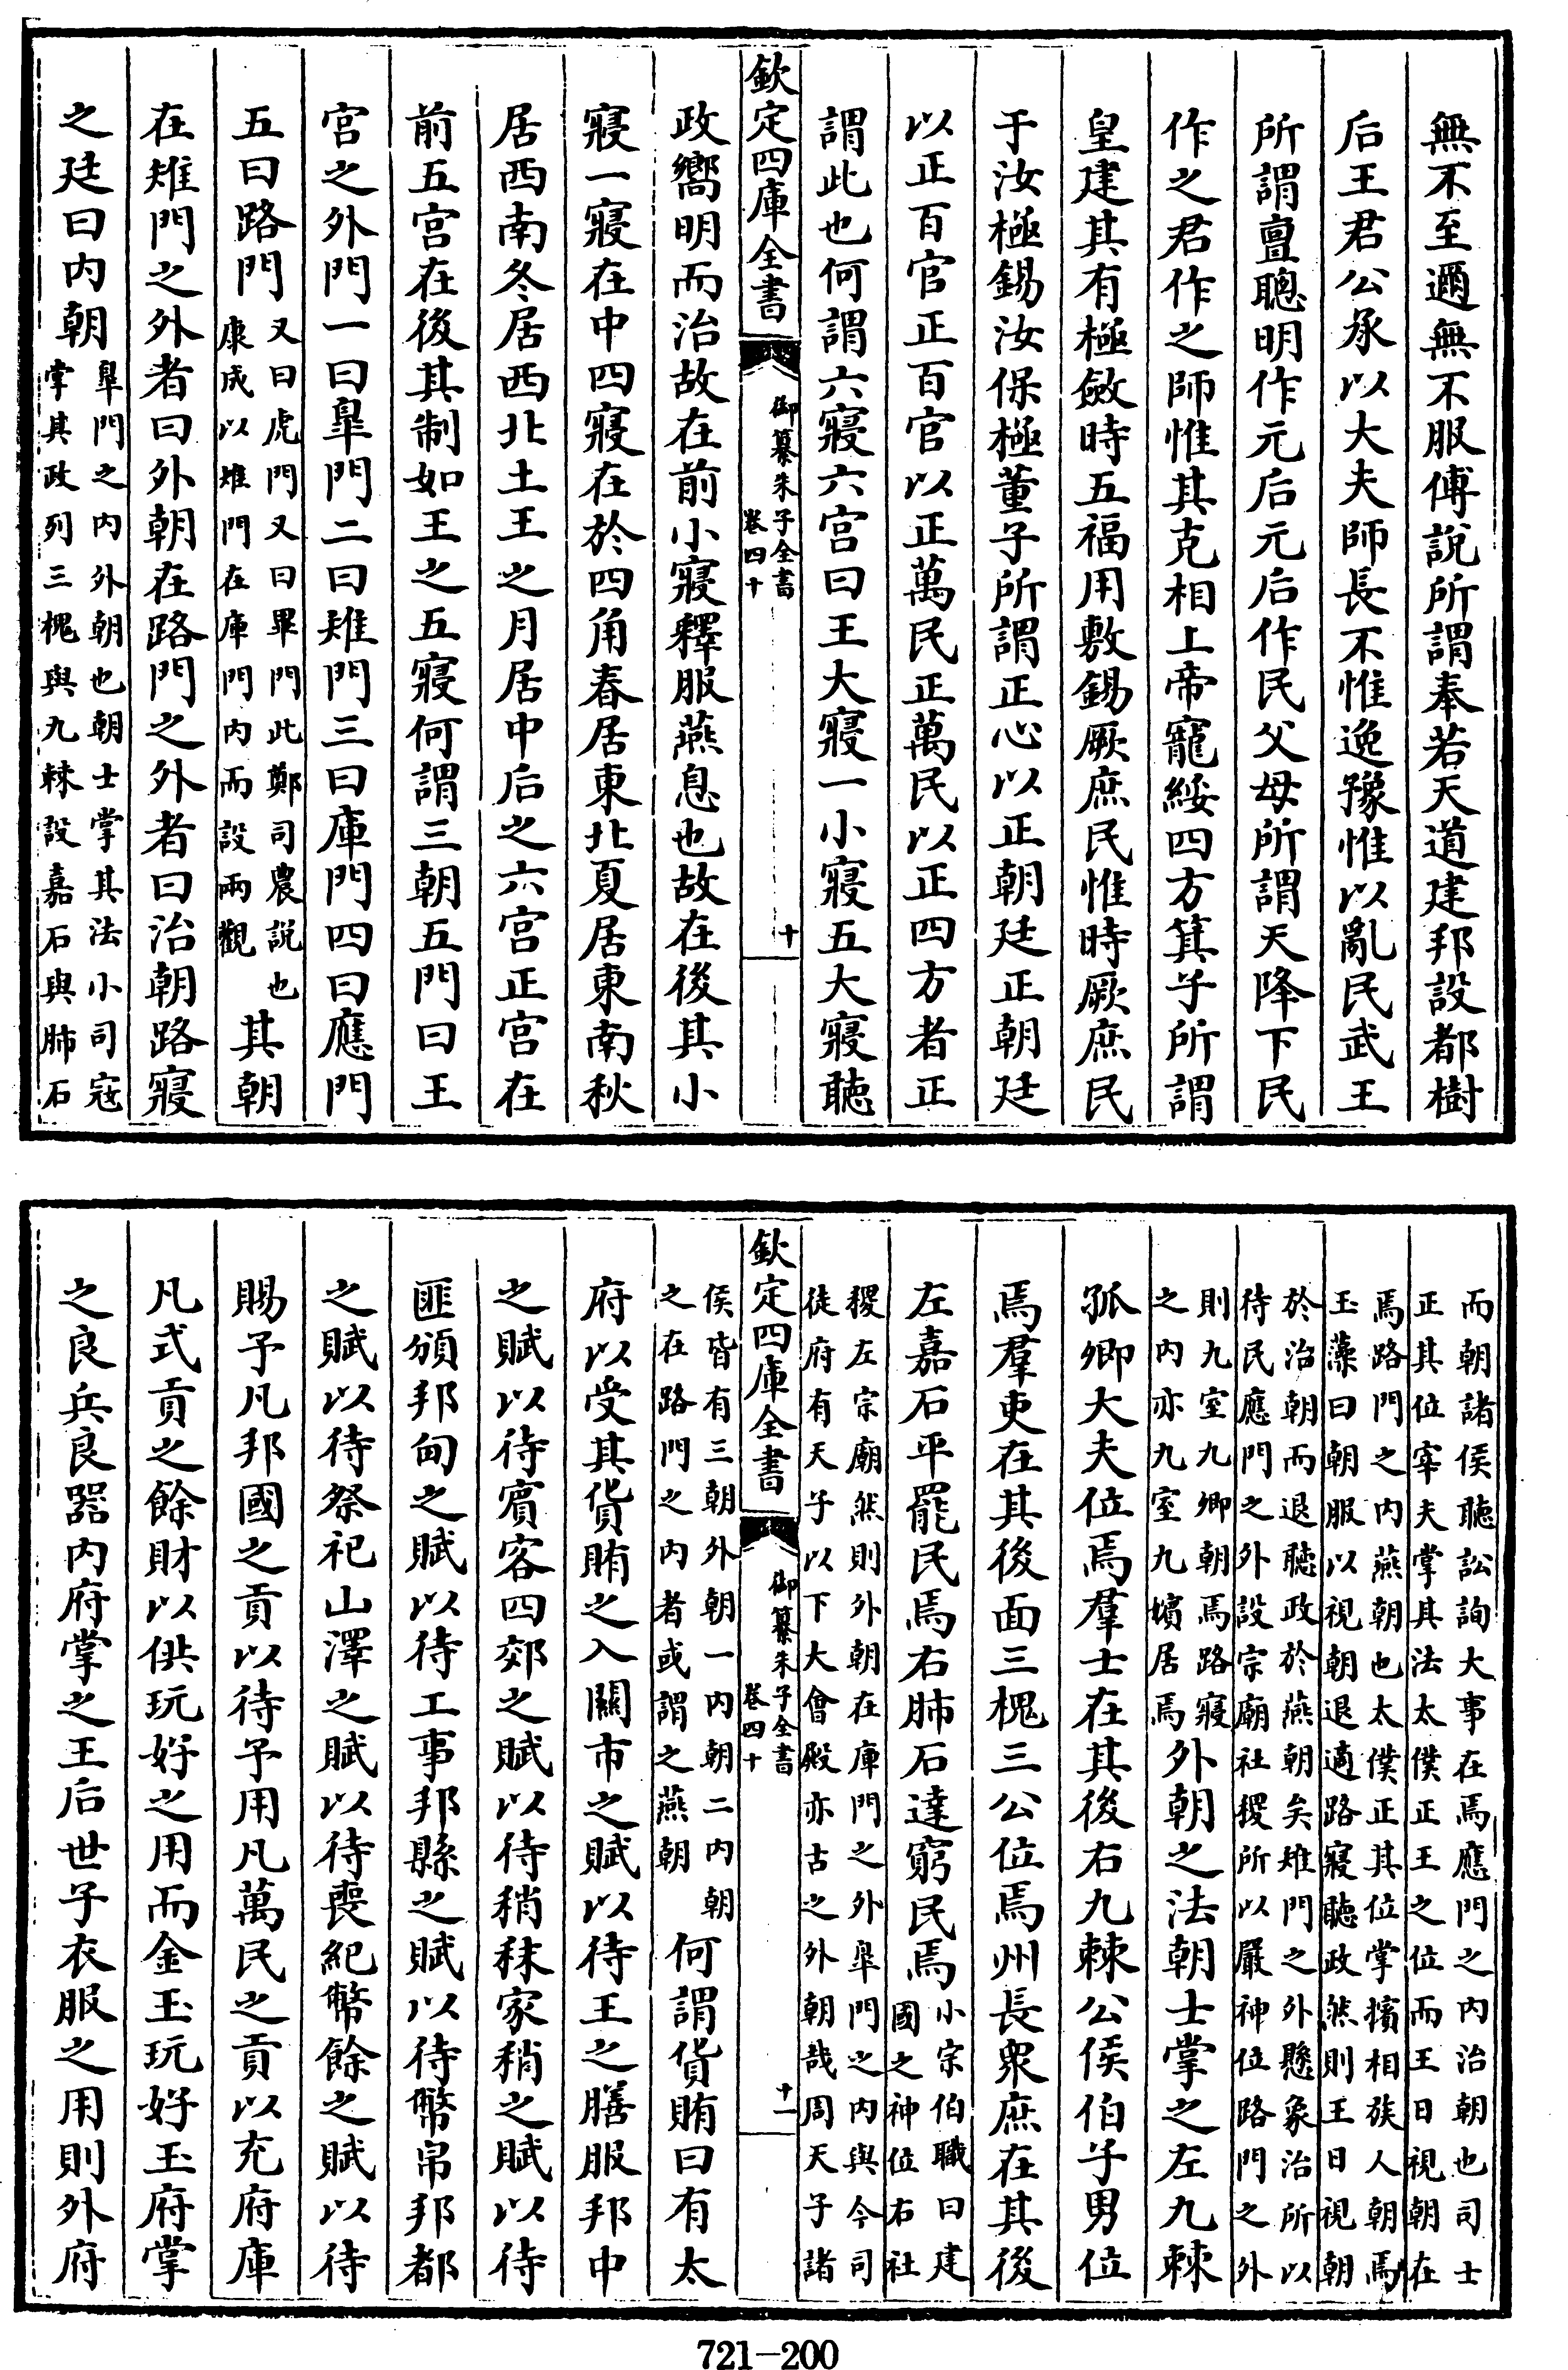 無不至邇無不服傅說所謂奉若天道建邦設都樹
后王君公承以大夫師長不惟逸豫惟以亂民武王
所謂亶聰明作元后元后作民父母所謂天降下民
作之君作之師惟其克相上帝寵綏四方箕子所謂
皇建其有極斂時五福用敷錫厥庶民惟時厥庶民
于汝極錫汝保極董子所謂正心以正朝廷正朝廷
以正百官正百官以正萬民正萬民以正四方者正
謂此也何謂六寢六宮曰王大寢一小寢五大寢聽
欽定四庫全書
御纂朱子全書
卷四十
十
政嚮明而治故在前小寢釋服燕息也故在後其小
寢一寢在中四寢在於四角春居東北夏居東南秋
居西南冬居西北土王之月居中后之六宮正宮在
前五宮在後其制如王之五寢何謂三朝五門曰王
宮之外門一曰臯門二曰雉門三曰庫門四曰應門
五曰路門
又曰虎門又曰畢門此鄭司農說也
康成以雉門在庫門內而設兩觀
其朝
在雉門之外者曰外朝在路門之外者曰治朝路寢
之廷曰內朝
臯門之內外朝也朝士掌其法小司寇
掌其政列三槐與九棘設嘉石與肺石
而朝諸侯聽訟詢大事在焉應門之內治朝也司士
正其位宰夫掌其法太僕正王之位而王日視朝在
焉路門之內燕朝也太僕正其位掌擯相族人朝焉
玉藻曰朝服以視朝退適路寢聽政然則王日視朝
於治朝而退聽政於燕朝矣雉門之外懸象治所以
待民應門之外設宗廟社稷所以嚴神位路門之外
則九室九卿朝焉路寢
之內亦九室九嬪居焉
外朝之法朝士掌之左九棘
孤卿大夫位焉羣士在其後右九棘公侯伯子男位
焉羣吏在其後面三槐三公位焉州長眾庶在其後
左嘉石平罷民焉右肺石達窮民焉
小宗伯職曰建
國之神位右社
稷左宗廟然則外朝在庫門之外臯門之內與今司
徒府有天子以下大會殿亦古之外朝哉周天子諸
侯皆有三朝外朝一內朝二內朝
之在路門之內者或謂之燕朝
何謂貨賄曰有太
欽定四庫全書
御纂朱子全書
卷四十
十一
府以受其貨賄之入關市之賦以待王之膳服邦中
之賦以待賓客四郊之賦以待稍秣家稍之賦以待
匪頒邦甸之賦以待工事邦縣之賦以待幣帛邦都
之賦以待祭祀山澤之賦以待喪紀幣餘之賦以待
賜予凡邦國之貢以待予用凡萬民之貢以充府庫
凡式貢之餘財以供玩好之用而金玉玩好玉府掌
之良兵良器內府掌之王后世子衣服之用則外府
721-200